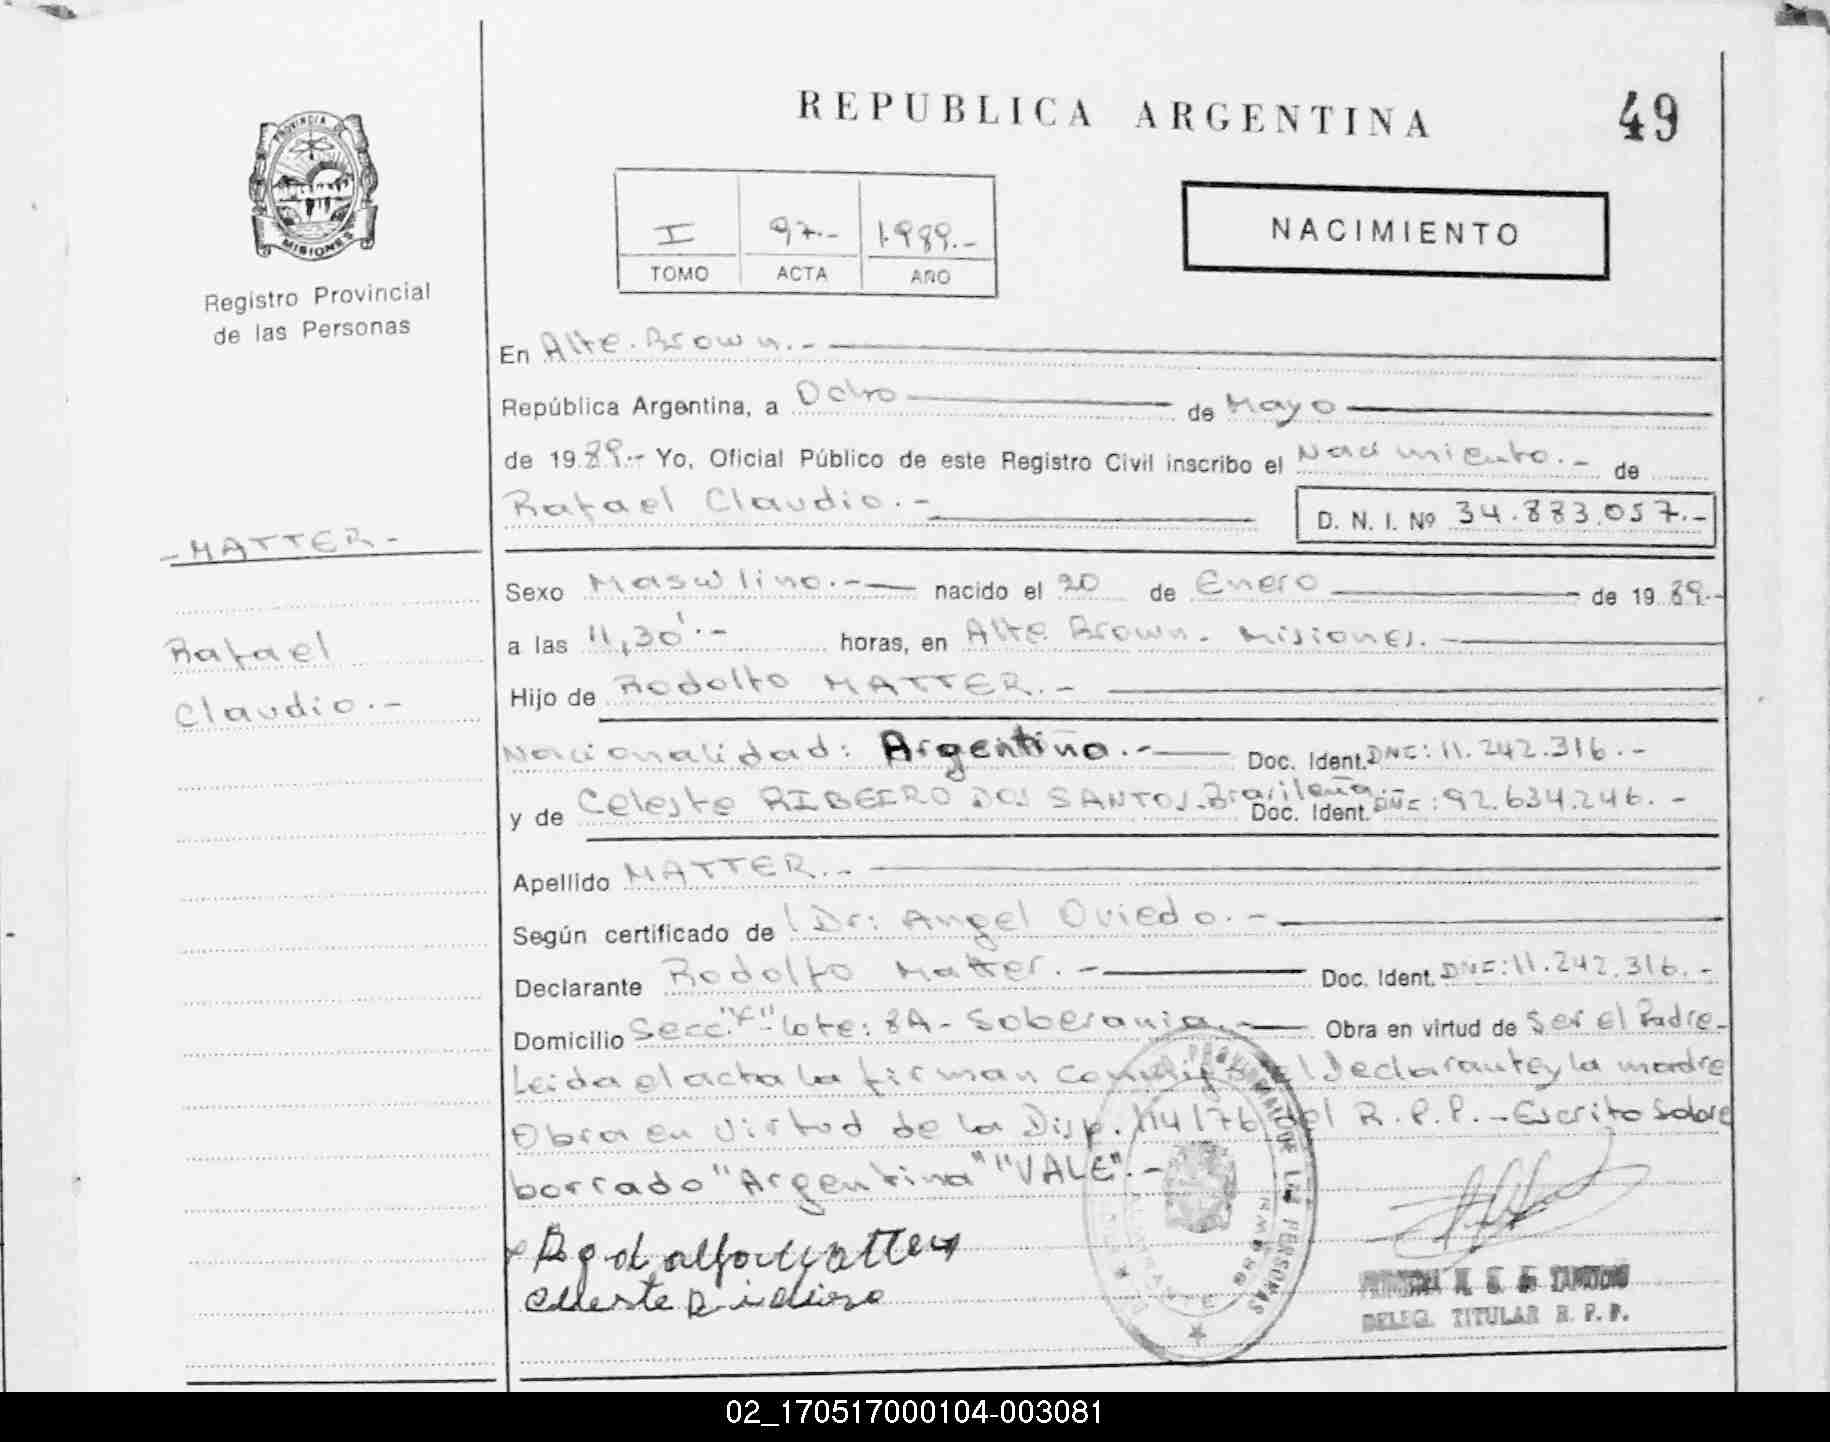 REPUBLICA ARGENTINA
49
PROVINCIA DE
MISIONES
Registro Provincial
de las Personas
I 97.- 1.989.-
TOMO ACTA AÑO
NACIMIENTO
En Alte. Brown.-
República Argentina, a Ocho de Mayo
de 1989.- Yo, Oficial Público de este Registro Civil inscribo el Nacimiento.- de
Rafael Claudio.-
D. N. I. Nº 34.883.057.-
-MATTER-
Rafael
Claudio.-
Sexo Masculino.- nacido el 20 de Enero de 1989.-
a las 11,30'.- horas, en Alte Brown. Misiones.-
Hijo de Rodolfo MATTER.-
Nacionalidad: Argentino.- Doc. Ident. DNI: 11.242.316.-
y de Celeste RIBEIRO DOS SANTOS. Brasileña.- Doc. Ident. DNI: 92.634.246.-
Apellido MATTER.-
Según certificado de Dr: Angel Oviedo.-
Declarante Rodolfo Matter.- Doc. Ident. DNI: 11.242.316.-
Domicilio Secc. "F" lote: 8A- Soberania.- Obra en virtud de Ser el Padre-
Leida el acta la firman conmigo el Declarante y la madre
Obra en virtud de la Disp. 114/76 del R.P.P.- Escrito Sobre
borrado "Argentina" "VALE".-
Rodolfo Matter
Celeste
DE LAS PERSONAS
DELEG. TITULAR R. P. P.
02_170517000104-003081